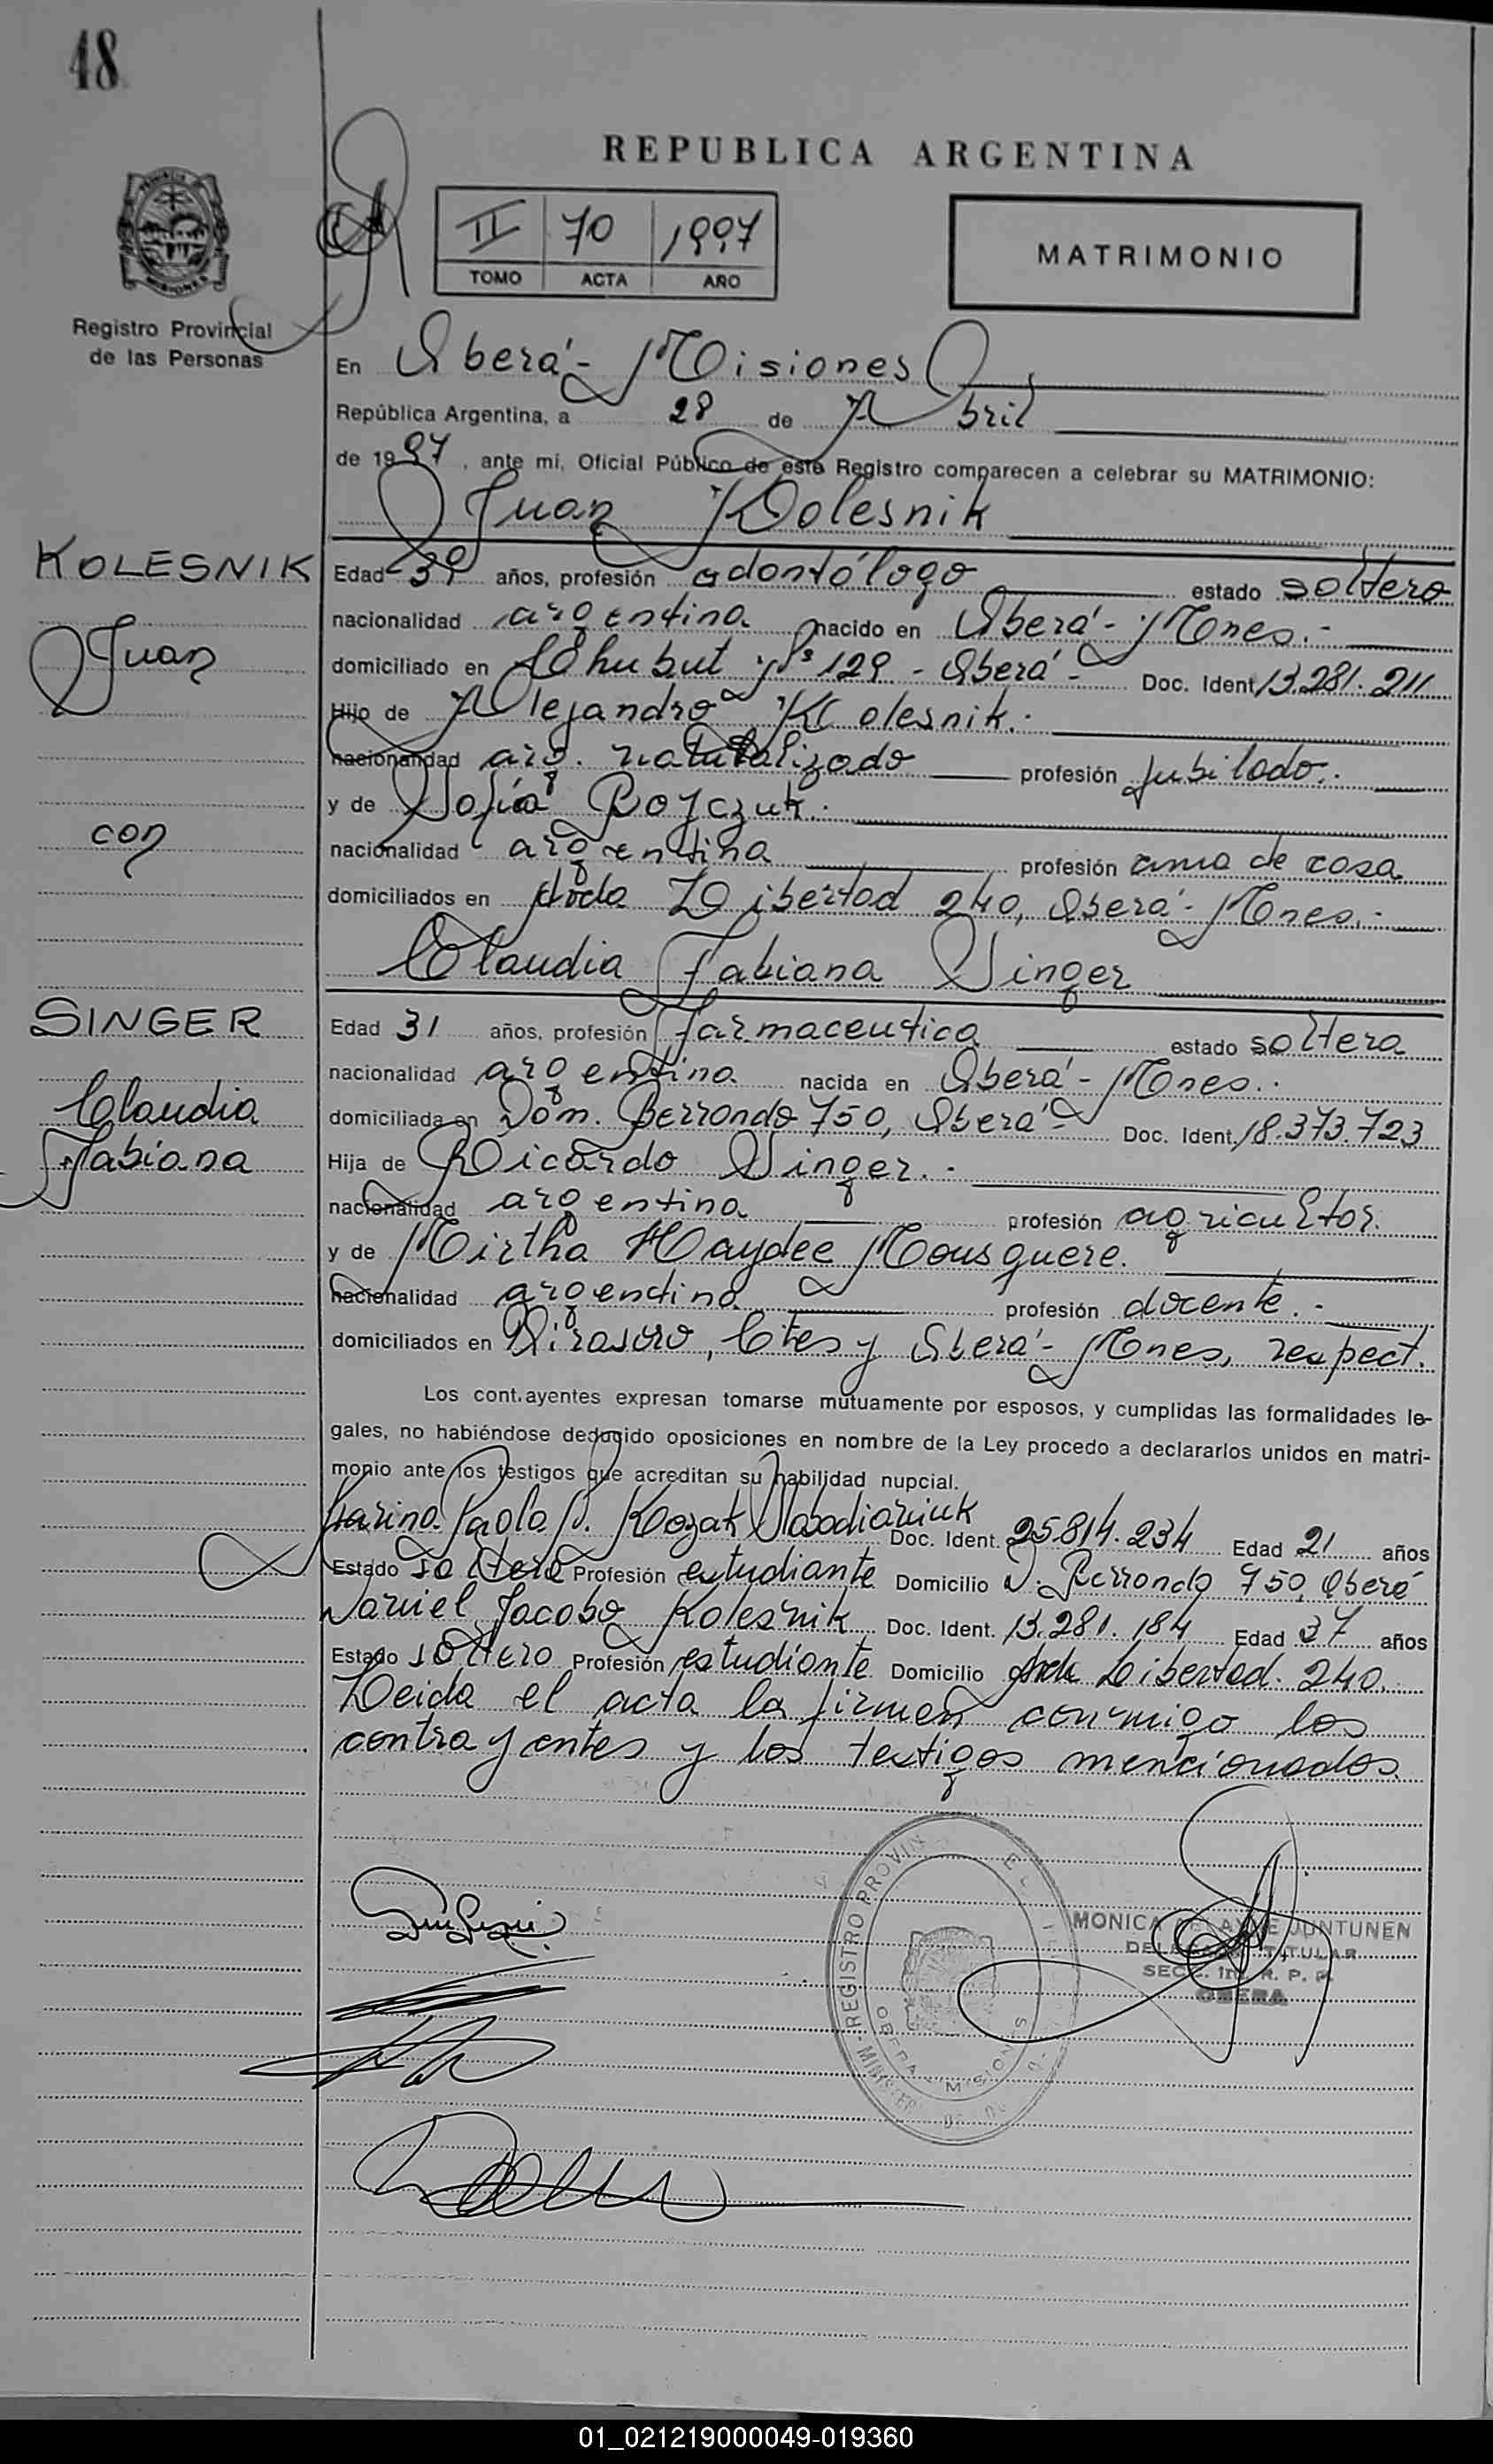 48
REPUBLICA ARGENTINA
II 70 1997
TOMO ACTA AÑO
MATRIMONIO
Registro Provincial
de las Personas
En Oberá - Misiones
República Argentina, a 28 de Abril
de 1997, ante mí, Oficial Público de este Registro comparecen a celebrar su MATRIMONIO:
Juan Kolesnik
KOLESNIK
Juan
con
Edad 39 años, profesión odontólogo estado soltero
nacionalidad argentina nacido en Oberá - Mnes.-
domiciliado en Chubut Nº 129 - Oberá - Doc. Ident. 13.281.211
Hijo de Alejandro Kolesnik.
nacionalidad arg. naturalizado profesión jubilado.
y de Sofía Boyczuk.
nacionalidad argentina profesión ama de casa
domiciliados en Avda Libertad 240, Oberá - Mnes.-
Claudia Fabiana Singer
SINGER
Claudia
Fabiana
Edad 31 años, profesión farmaceutica estado soltera
nacionalidad argentina nacida en Oberá - Mnes.
domiciliada en Dom. Berrondo 750, Oberá - Doc. Ident. 18.373.723
Hija de Ricardo Singer.-
nacionalidad argentina profesión agricultor.
y de Mirtha Haydee Mousquere.
nacionalidad argentina profesión docente.-
domiciliados en Virasoro, Ctes y Oberá - Mnes, respect.
Los contrayentes expresan tomarse mutuamente por esposos, y cumplidas las formalidades le-
gales, no habiéndose deducido oposiciones en nombre de la Ley procedo a declararlos unidos en matri-
monio ante los testigos que acreditan su habilidad nupcial.
Karina Paola S. Kozak Slabodianiuk Doc. Ident. 25.814.234 Edad 21 años
Estado soltera Profesión estudiante Domicilio D. Berrondo 750, Oberá
Daniel Jacobo Kolesnik Doc. Ident. 13.281.184 Edad 37 años
Estado soltero Profesión estudiante Domicilio Avda Libertad. 240.
Leida el acta la firman conmigo los
contrayentes y los testigos mencionados.
REGISTRO PROVIN
OBERA MISIONES
MONICA JUNTUNEN
TITULAR
R. P. P.
OBERA
01_021219000049-019360